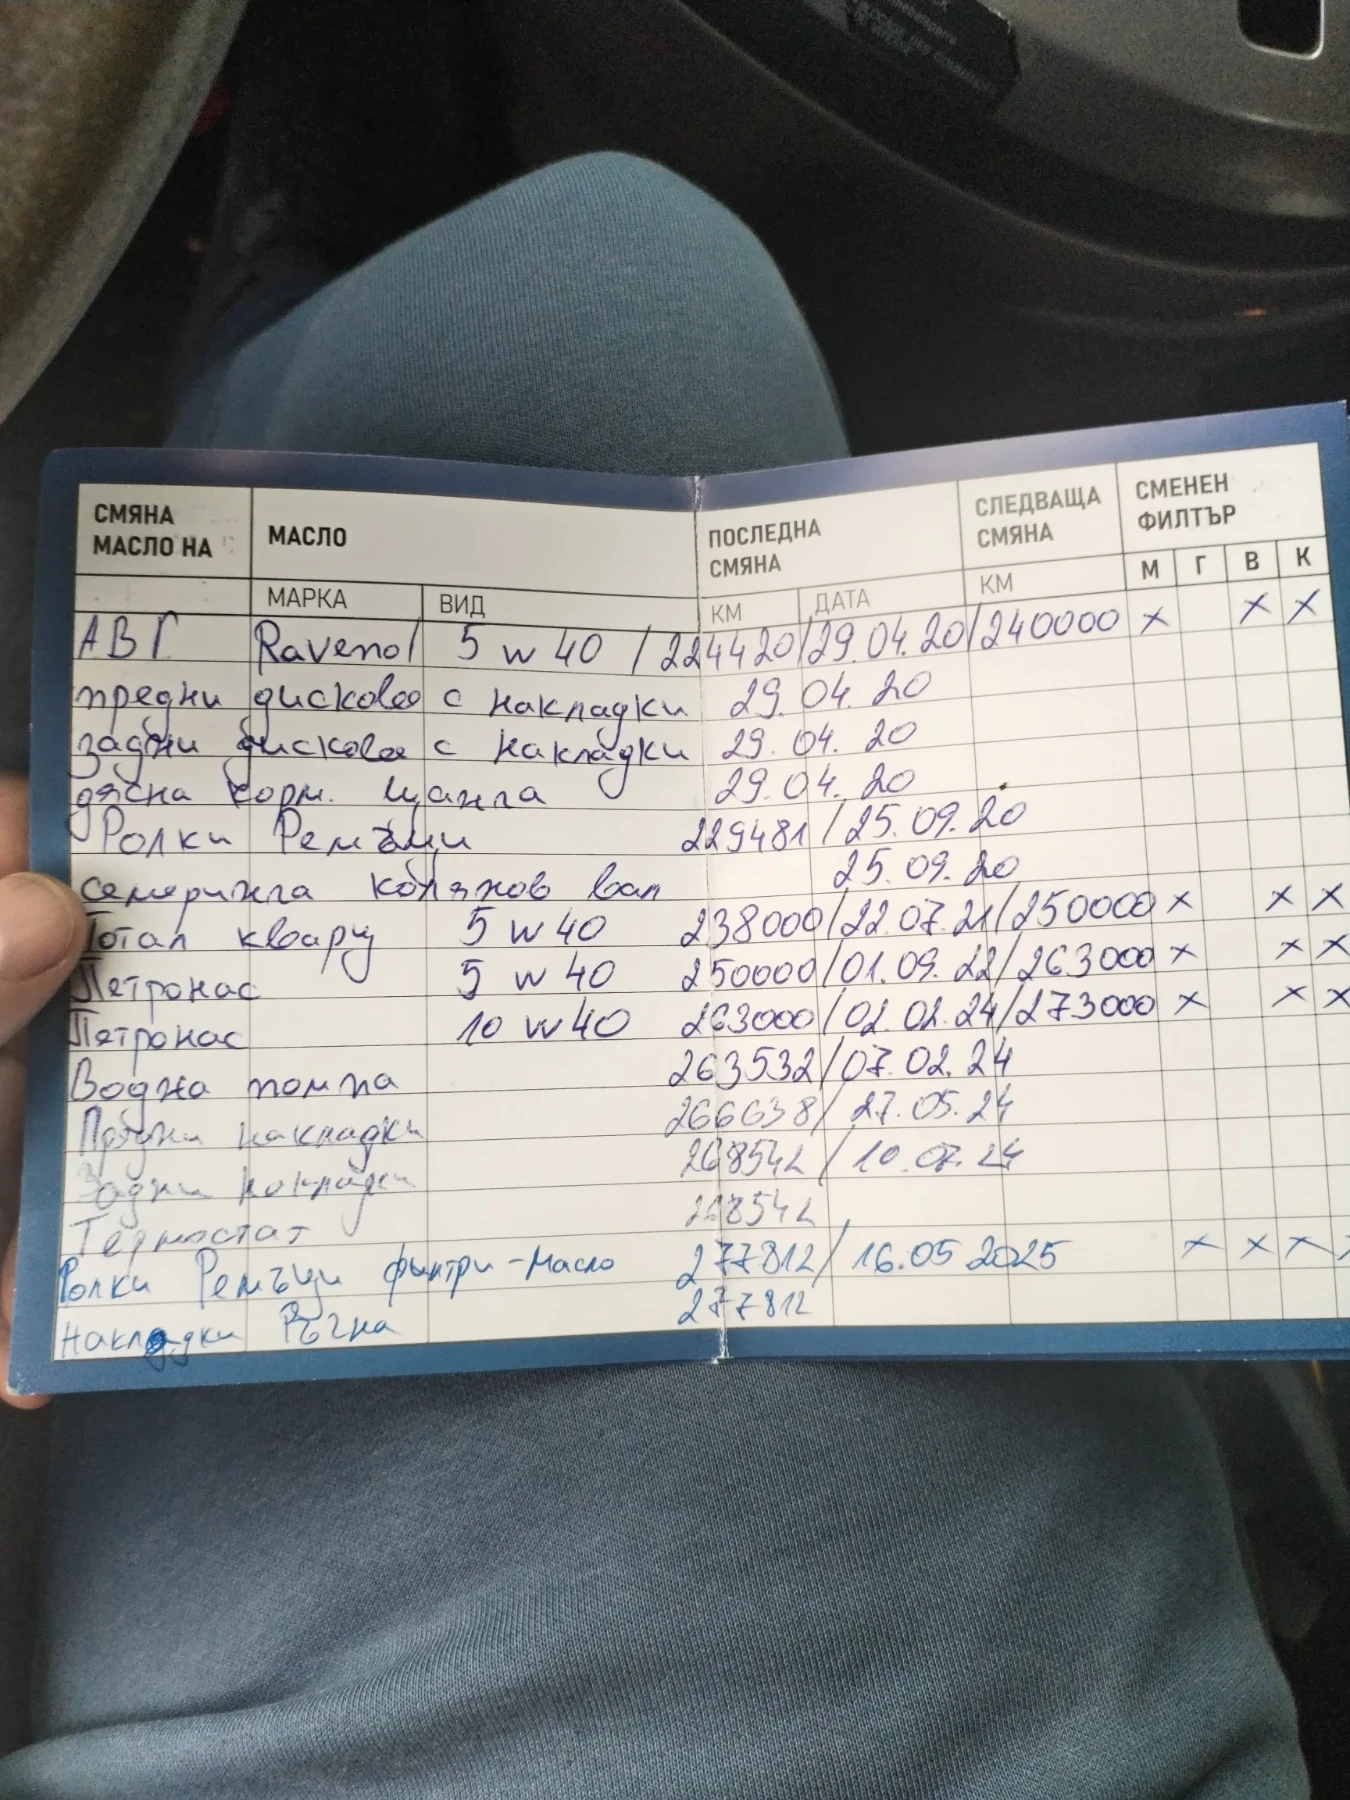 СМЯНА МАСЛО НА МАСЛО ПОСЛЕДНА СМЯНА СЛЕДВАЩА СМЯНА СМЕНЕН ФИЛТЪР
МАРКА ВИД КМ ДАТА КМ М Г В К
АВГ Ravenol 5 w 40 / 224420/29.04.20/240000 x x x
предни дискове с накладки 29.04.20
задни дискове с накладки 29.04.20
дясна корм. щанга 29.04.20
Ролки Ремъци 229481/25.09.20
семеринга колянов вал 25.09.20
Тотал кварц 5 w 40 238000/22.07.21/250000 x x x
Петронас 5 w 40 250000/01.09.22/263000 x x x
Петронас 10 w 40 263000/02.02.24/273000 x x x
Водна помпа 263532/07.02.24
Предни накладки 266638/27.05.24
Задни накладки 268542/10.07.24
Термостат 268542
Ролки Ремъци филтри-Масло 277812/16.05 2025 x x x x
Накладки Ръчна 277812